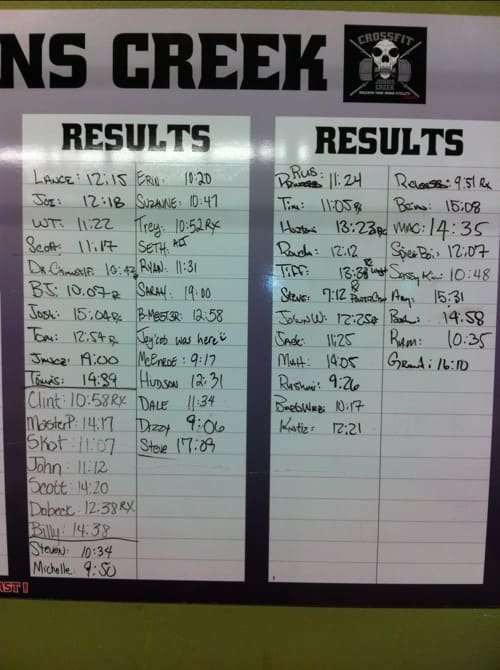 NS CREEK
CROSSFIT
JOHNS
CREEK
RESULTS
LANCE: 12:15
JOE: 12:18
WT: 11:22
Scott: 11:17
BJ: 10:07 R
Josh: 15:04 R
Tom: 12:54 R
19:00
Tomás: 14:39
Clint: 10:58 RX
MasterP: 14:17
Skot: 11:07
John: 11:12
Scott: 14:20
Dabeck: 12:38 RX
Billy: 14:38
Steven: 10:34
Michelle: 9:50
ERIN: 10:20
SUZANNE: 10:47
Trey: 10:52 RX
SETH:
RYAN: 11:31
SARAH: 19:00
B-MEISTER: 12:58
Jay'cob was here
McEnroe: 9:17
HUDSON 12:31
DALE 11:34
Dizzy 9:06
Steve 17:09
RESULTS
Rus: 11:24
Tim: 11:05 R
13:23
12:12
TIFF:
STEVE: 7:12
JOHN W: 12:25
Jack: 11:25
Matt: 14:05
9:26
10:17
12:21
9:51 Rx
Brian: 15:08
MAC: 14:35
12:07
Sassy Kim: 10:48
Amy: 15:31
14:58
10:35
Grant: 16:10
AST!